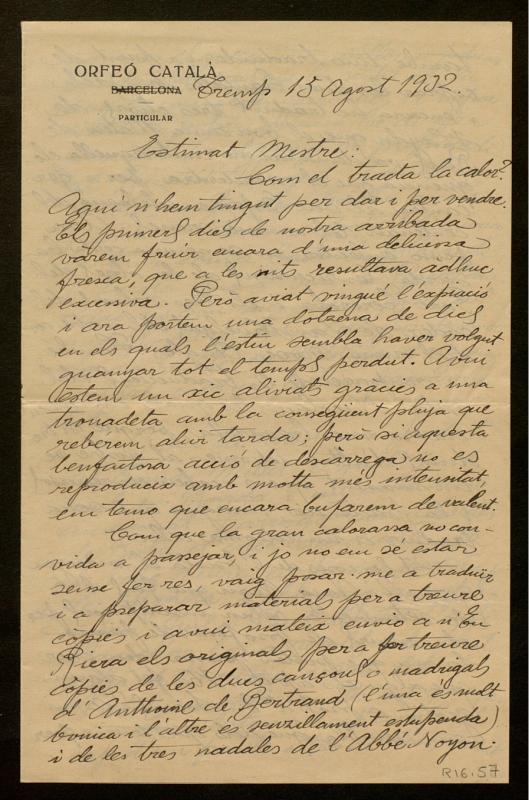 ORFEÓ CATALÀ
BARCELONA Tremp 15 Agost 1932.
PARTICULAR
Estimat Mestre:
Com el tracta la calor?
Aquí n'hem tingut per dar i per vendre.
Els primers dies de nostra arribada
vàrem fruir encara d'una deliciosa
fresca, que a les nits resultava àdhuc
excessiva. Però aviat vingué l'expiació
i ara portem una dotzena de dies
en els quals l'estiu sembla haver volgut
guanyar tot el temps perdut. Avui
estem un xic aliviats gràcies a una
tronadeta amb la consegüent pluja que
reberem ahir tarda; però si aquesta
benfactora acció de descàrrega no es
reprodueix amb molta més intensitat,
em temo que encara bufarem de valent.
Com que la gran calorassa no con-
vida a passejar, i jo no em sé estar
sense fer res, vaig posar-me a traduir
i a preparar materials per a treure
còpies i avui mateix envio a n'En
Riera els originals per a fer treure
còpies de les dues cançons o madrigals
d'Anthoine de Bertrand (l'una és molt
bonica i l'altre és senzillament estupenda)
i de les tres nadales de l'Abbé Noyon.
R16.57